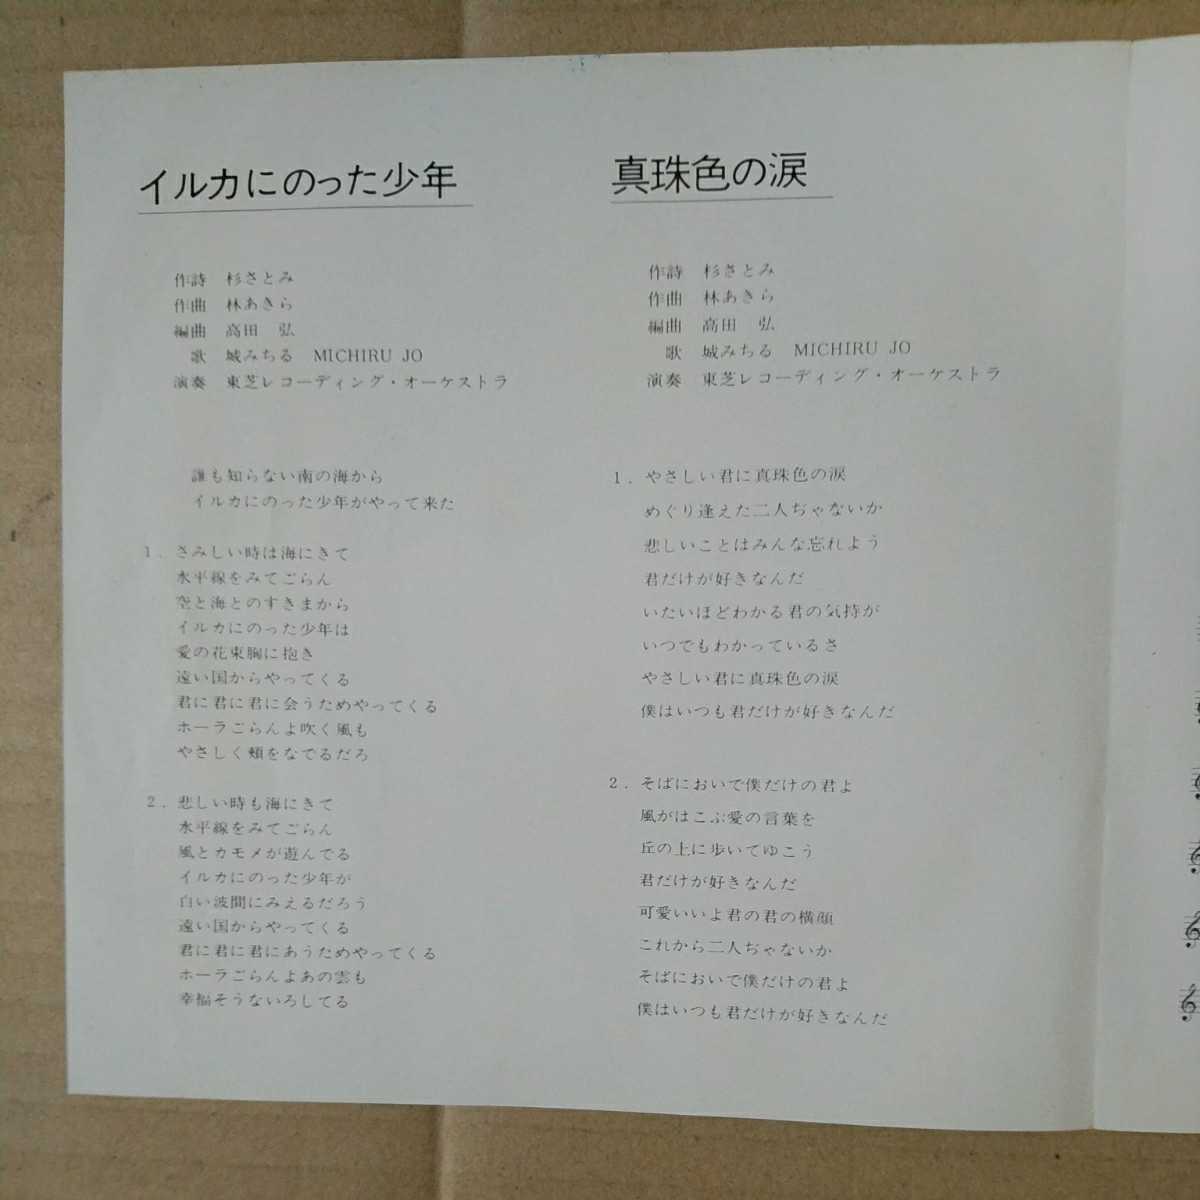 イルカにのった少年
作詩 杉さとみ
作曲 林あきら
編曲 高田 弘
歌 城みちる MICHIRU JO
演奏 東芝レコーディング・オーケストラ
誰も知らない南の海から
イルカにのった少年がやって来た
1．さみしい時は海にきて
水平線をみてごらん
空と海とのすきまから
イルカにのった少年は
愛の花束胸に抱き
遠い国からやってくる
君に君に君に会うためやってくる
ホーラごらんよ吹く風も
やさしく頬をなでるだろ
2．悲しい時も海にきて
水平線をみてごらん
風とカモメが遊んでる
イルカにのった少年が
白い波間にみえるだろう
遠い国からやってくる
君に君に君にあうためやってくる
ホーラごらんよあの雲も
幸福そうないろしてる
真珠色の涙
作詩 杉さとみ
作曲 林あきら
編曲 高田 弘
歌 城みちる MICHIRU JO
演奏 東芝レコーディング・オーケストラ
1．やさしい君に真珠色の涙
めぐり逢えた二人ぢゃないか
悲しいことはみんな忘れよう
君だけが好きなんだ
いたいほどわかる君の気持が
いつでもわかっているさ
やさしい君に真珠色の涙
僕はいつも君だけが好きなんだ
2．そばにおいで僕だけの君よ
風がはこぶ愛の言葉を
丘の上に歩いてゆこう
君だけが好きなんだ
可愛いいよ君の君の横顔
これから二人ぢゃないか
そばにおいで僕だけの君よ
僕はいつも君だけが好きなんだ